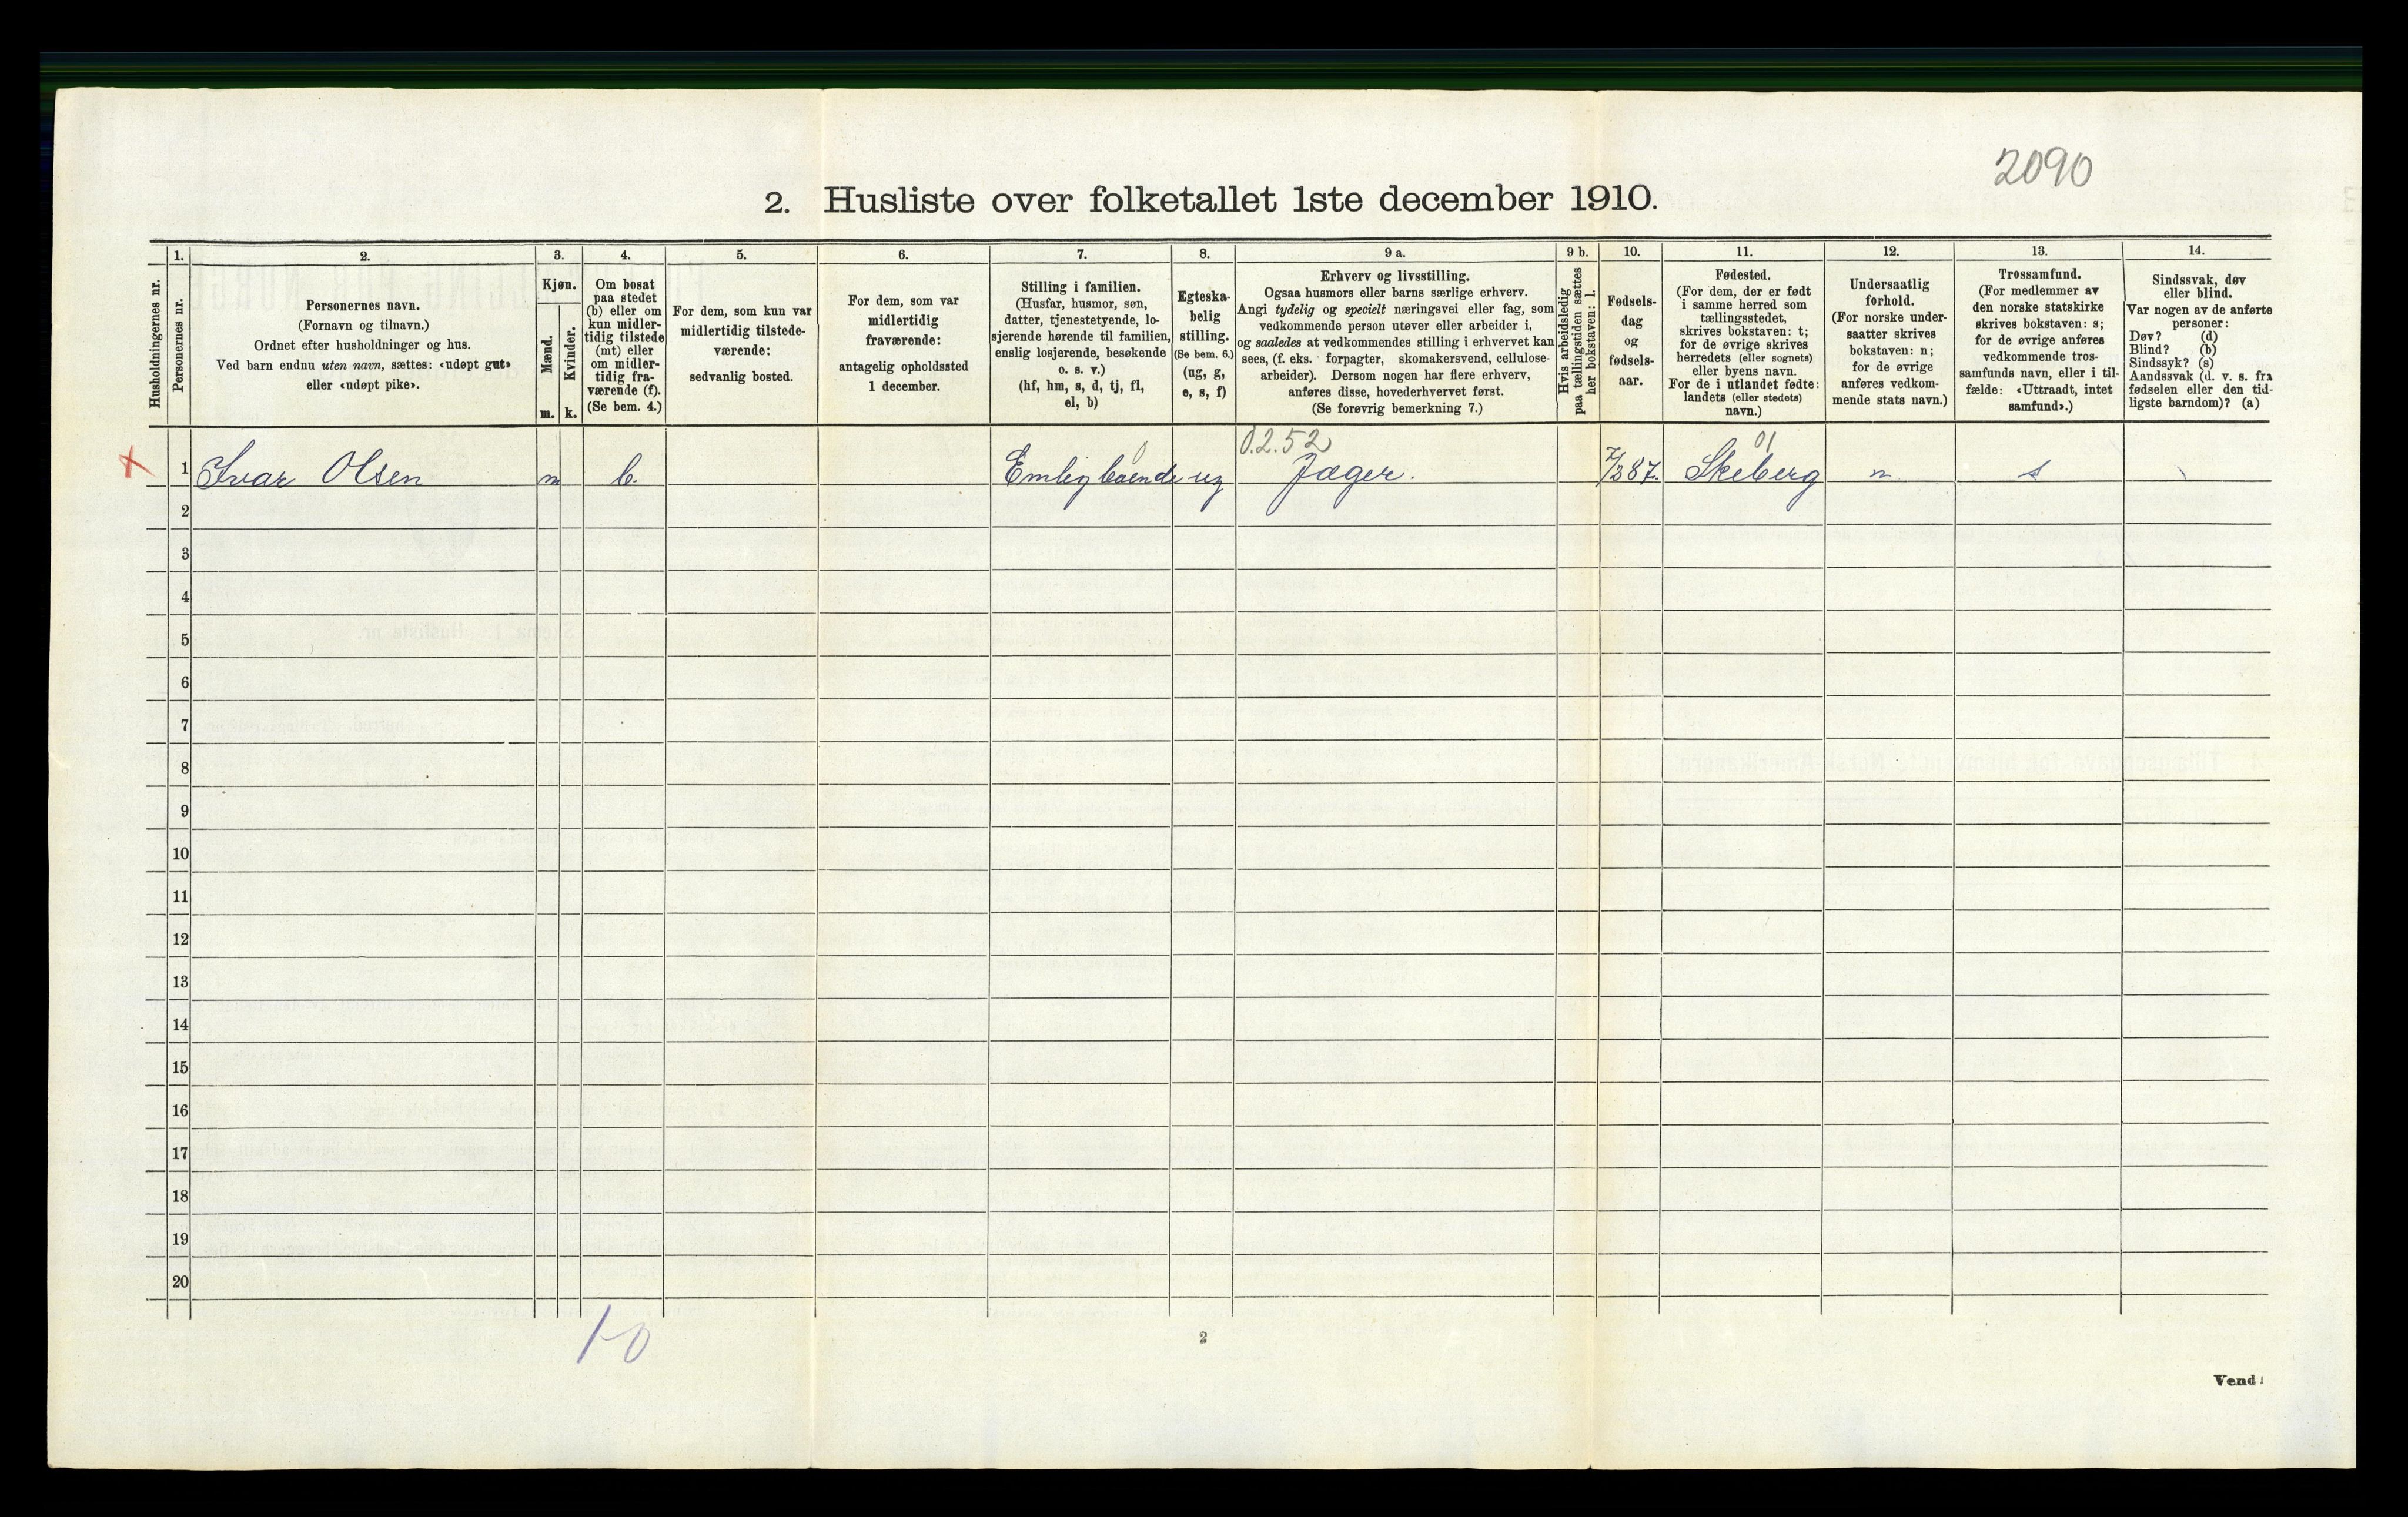 2090
2. Husliste over folketallet 1ste december 1910.
Husholdningernes nr.
1.
Personernes nr.
2.
Personernes navn.
(Fornavn og tilnavn.)
Ordnet efter husholdninger og hus.
Ved barn endnu uten navn, sættes: «udøpt gut»
eller «udøpt pike».
3.
Kjøn.
Mænd.
m.
Kvinder.
k.
4.
Om bosat
paa stedet
(b) eller om
kun midler-
tidig tilstede
(mt) eller
om midler-
tidig fra-
værende (f).
(Se bem. 4.)
5.
For dem, som kun var
midlertidig tilstede-
værende:
sedvanlig bosted.
6.
For dem, som var
midlertidig
fraværende:
antagelig opholdssted
1 december.
7.
Stilling i familien.
(Husfar, husmor, søn,
datter, tjenestetyende, lo-
sjerende hørende til familien,
enslig losjerende, besøkende
o. s. v.)
(hf, hm, s, d, tj, fl,
el, b)
8.
Egteska-
belig
stilling.
(Se bem. 6.)
(ug, g,
e, s, f)
9 a.
Erhverv og livsstilling.
Ogsaa husmors eller barns særlige erhverv.
Angi tydelig og specielt næringsvei eller fag, som
vedkommende person utøver eller arbeider i,
og saaledes at vedkommendes stilling i erhvervet kan
sees, (f. eks. forpagter, skomakersvend, cellulose-
arbeider). Dersom nogen har flere erhverv,
anføres disse, hovederhvervet først.
(Se forøvrig bemerkning 7.)
9 b.
Hvis arbeidsledig
paa tællingstiden sættes
her bokstaven: l.
10.
Fødsels-
dag
og
fødsels-
aar.
11.
Fødested.
(For dem, der er født
i samme herred som
tællingsstedet,
skrives bokstaven: t;
for de øvrige skrives
herredets (eller sognets)
eller byens navn.
For de i utlandet fødte:
landets (eller stedets)
navn.)
12.
Undersaatlig
forhold.
(For norske under-
saatter skrives
bokstaven: n;
for de øvrige
anføres vedkom-
mende stats navn.)
13.
Trossamfund.
(For medlemmer av
den norske statskirke
skrives bokstaven: s;
for de øvrige anføres
vedkommende tros-
samfunds navn, eller i til-
fælde: «Uttraadt, intet
samfund».)
14.
Sindssvak, døv
eller blind.
Var nogen av de anførte
personer:
Døv? (d)
Blind? (b)
Sindssyk? (s)
Aandssvak (d. v. s. fra
fødselen eller den tid-
ligste barndom)? (a)
0.2.52 01
1 Ivar Olsen m b. Enslig boende ug Jæger. 7/2 87. Skeberg n s
2
3
4
5
6
7
8
9
10
11
12
13
14
15
16
17
18
19
20
1-0
2
Vend!